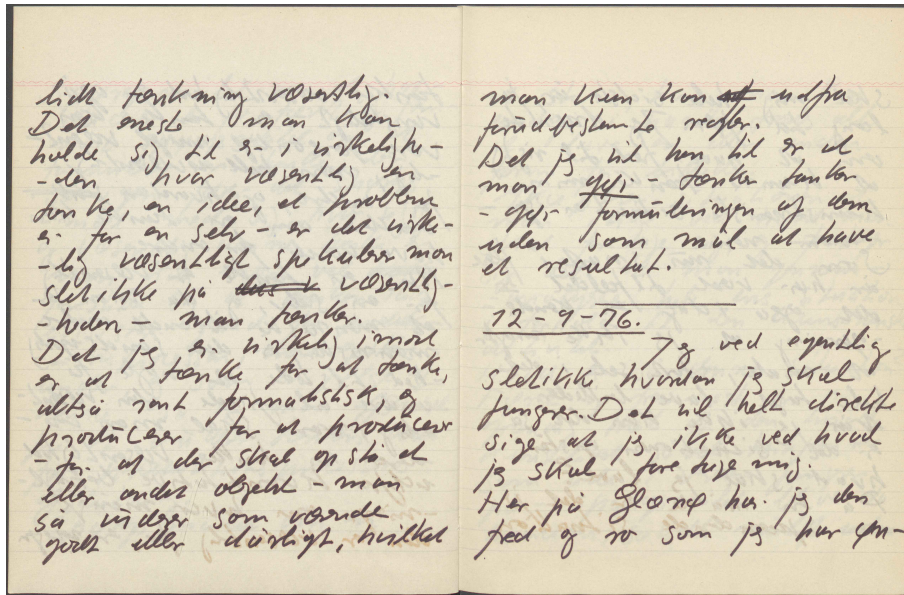 lidt tænkning væsentlig.
Det eneste man kan
holde sig til er i virkelighe-
-den hvor væsentlig en
tanke, en idee, et problem
er for en selv - er det virke-
-lig væsentligt spekulerer man
sletikke på væsentlig-
-heden - man tænker.
Det jeg er virkelig imod
er at tænke for at tænke,
altså rent formalistisk, og
producere for at producere
- for at der skal opstå et
eller andet objekt - man
så vurderer som værende
godt eller dårligt, hvilket
man kun kan udfra
forudbestemte regler.
Det jeg vil hen til er at
man - tænker tanker
- formuleringen af dem
uden som mål at have
et resultat.
12-9-76.
Jeg ved egentlig
sletikke hvordan jeg skal
fungerer. Det vil helt direkte
sige at jeg ikke ved hvad
jeg skal foretage mig.
Her på Glænø har jeg den
fred og ro som jeg har øn-